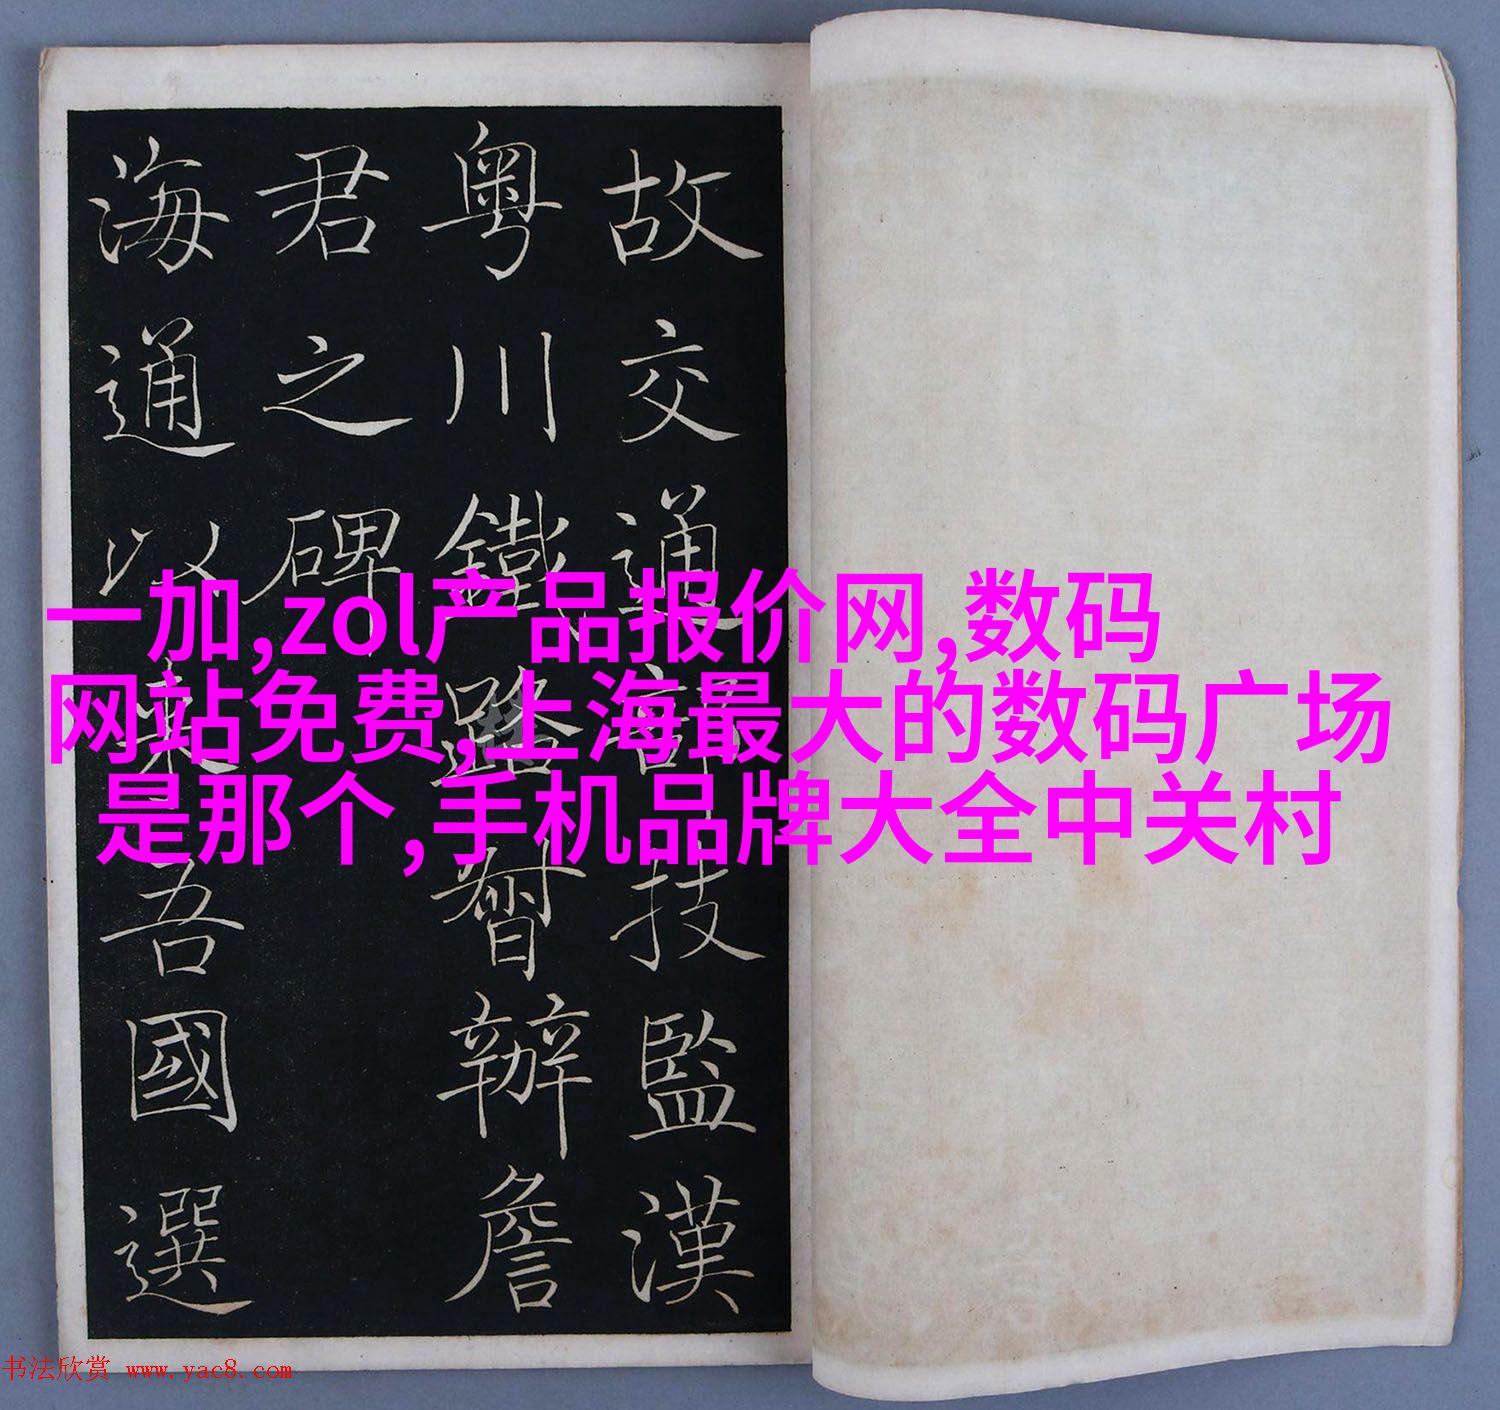 故交通部技監漢
粤川鐵路督辦詹
君之碑
海通以來吾國選
一加,zol产品报价网,数码
网站免费,上海最大的数码广场
是那个,手机品牌大全中关村
书法欣赏 www.yac8.com